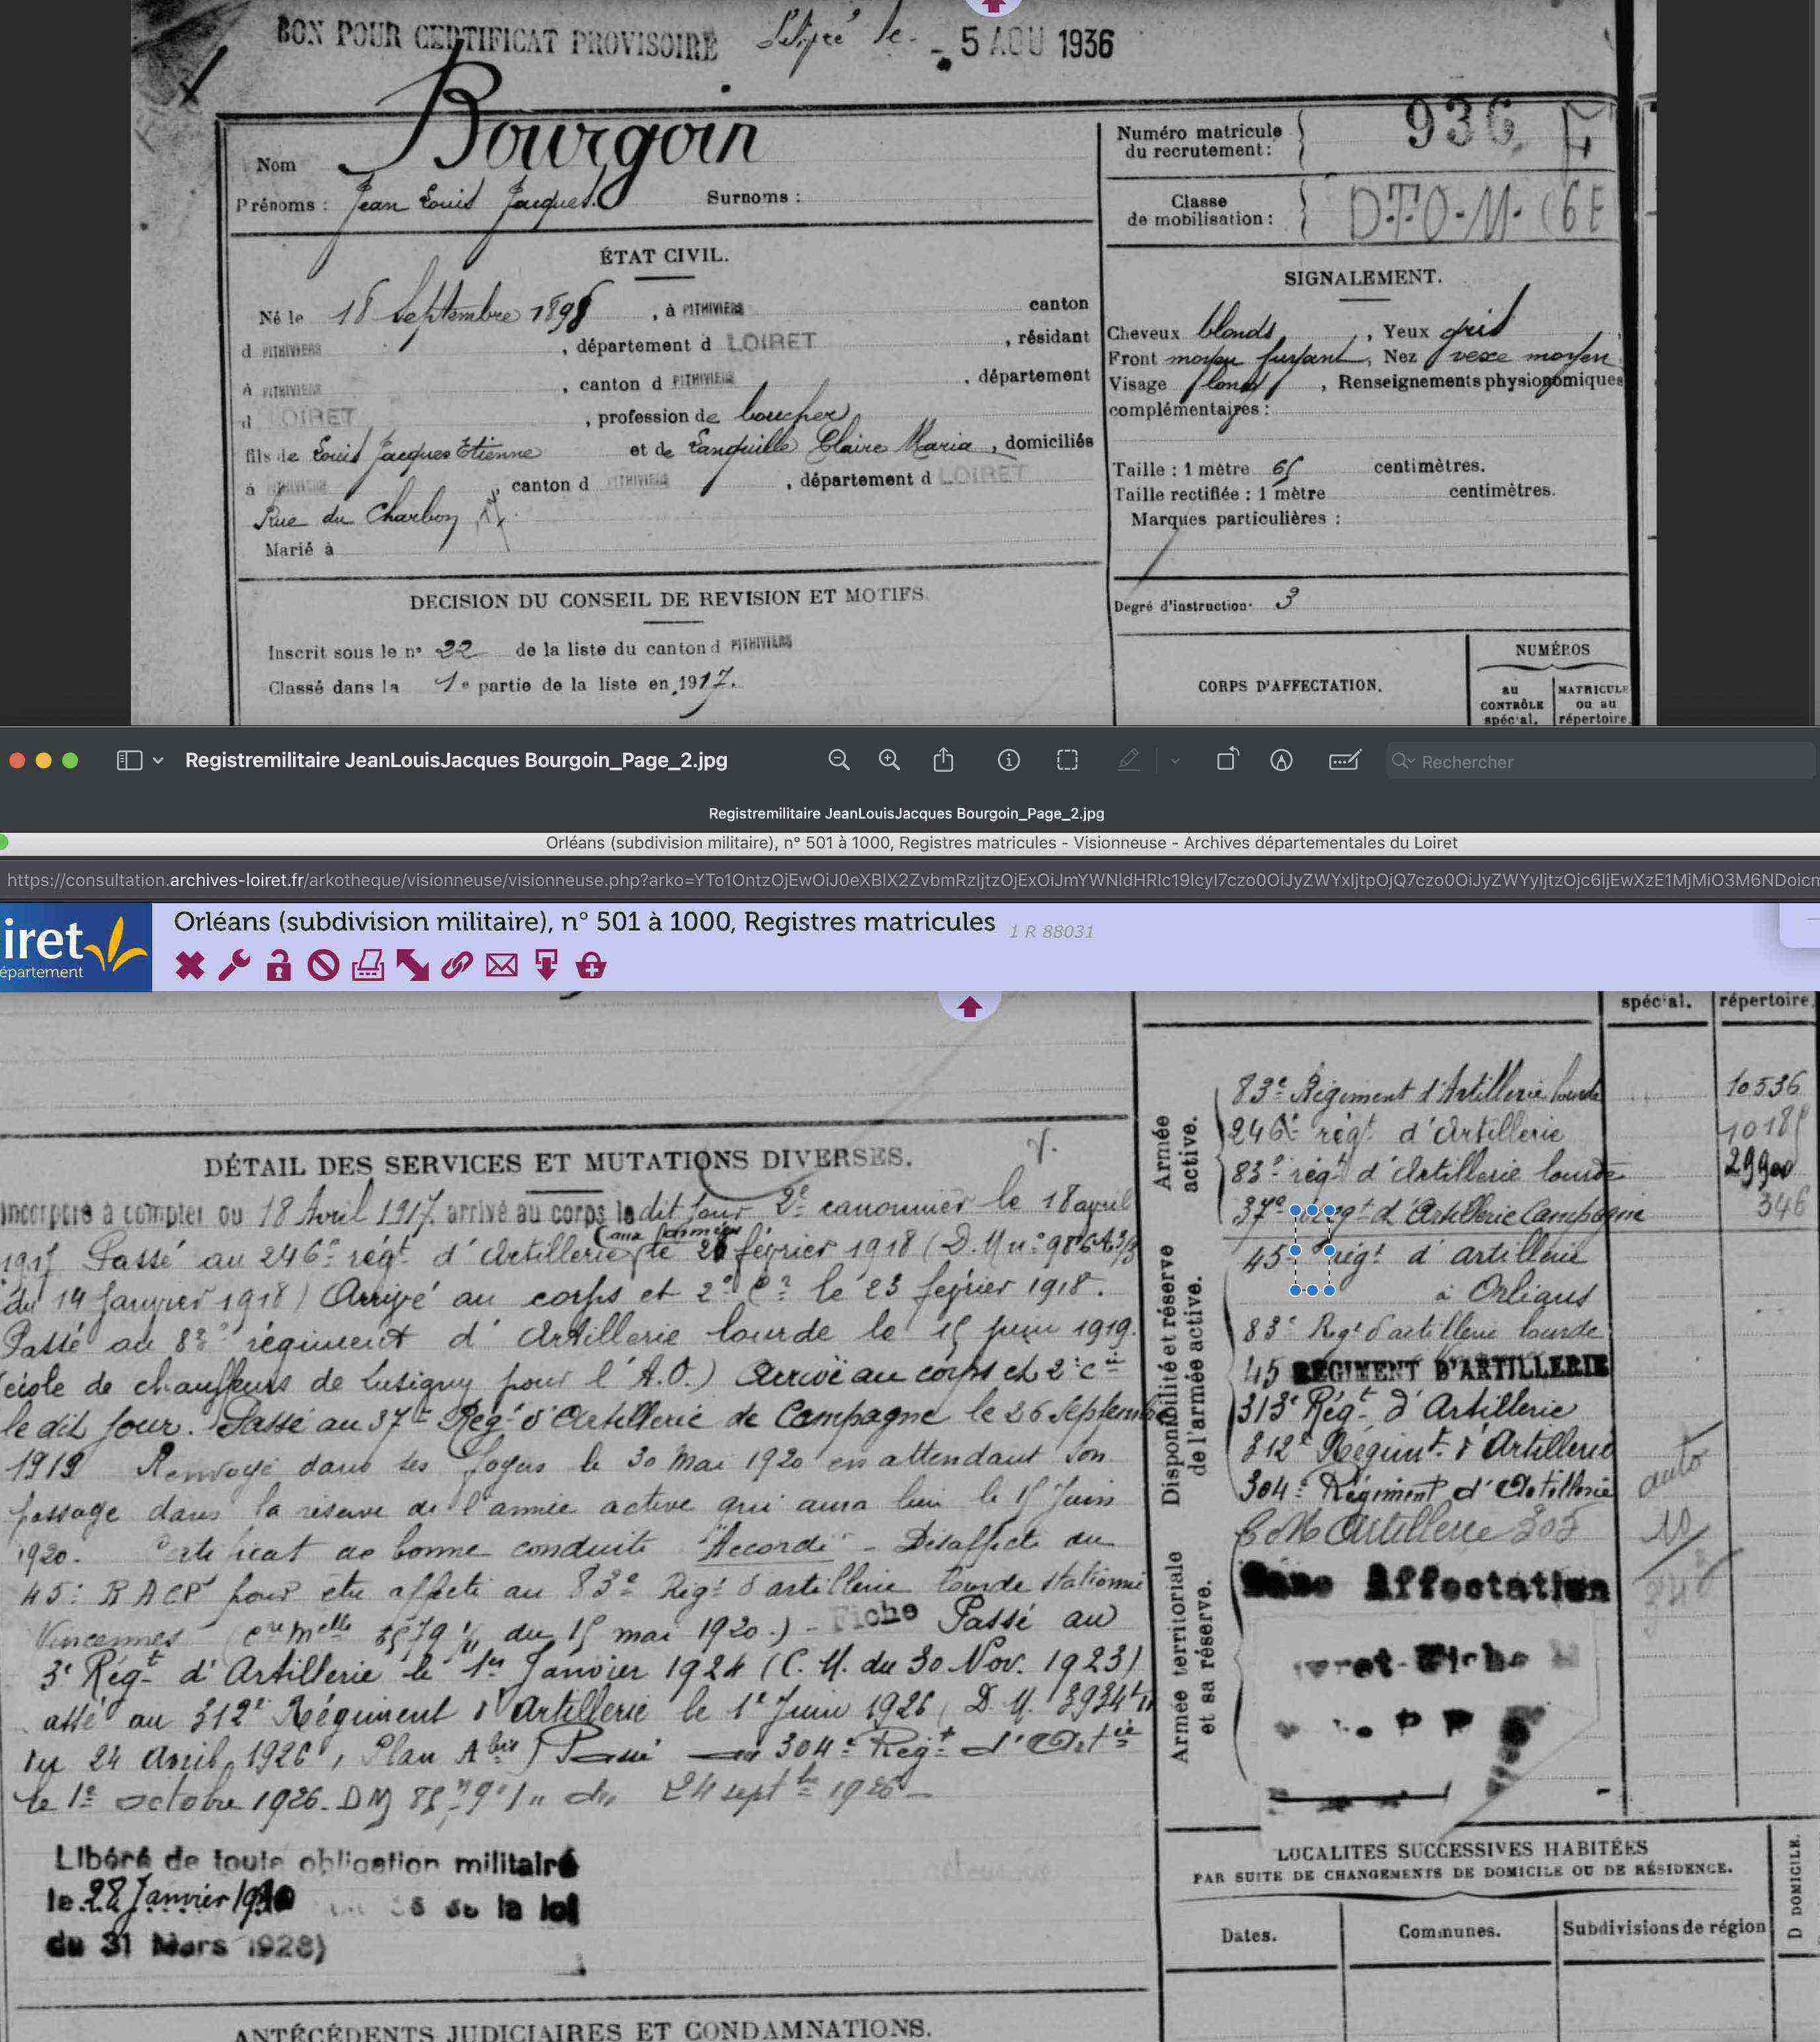 BON POUR CERTIFICAT PROVISOIRE Délivré le - 5 AOU 1936
Nom Bourgoin
Prénoms : Jean Louis Jacques Surnoms :
Numéro matricule du recrutement : 936
Classe de mobilisation : D.T.O.M. (6E
ÉTAT CIVIL.
Né le 18 Septembre 1898, à PITHIVIERS canton
d PITHIVIERS, département d LOIRET, résidant
à PITHIVIERS, canton d PITHIVIERS, département
d LOIRET, profession de boucher
fils de Louis Jacques Etienne et de Lanquille Claire Maria, domiciliés
à PITHIVIERS, canton d PITHIVIERS, département d LOIRET
Rue du Charbon
Marié à
SIGNALEMENT.
Cheveux blonds, Yeux gris
Front moyen fuyant, Nez vexe moyen
Visage long, Renseignements physionomiques
complémentaires :
Taille : 1 mètre 65 centimètres.
Taille rectifiée : 1 mètre centimètres.
Marques particulières :
Degré d'instruction· 3
DECISION DU CONSEIL DE REVISION ET MOTIFS
Inscrit sous le n° 22 de la liste du canton d PITHIVIERS
Classé dans la 1e partie de la liste en 1917.
CORPS D'AFFECTATION.
NUMÉROS
au CONTRÔLE spécial.
MATRICULE ou au répertoire
Registremilitaire JeanLouisJacques Bourgoin_Page_2.jpg
Rechercher
Registremilitaire JeanLouisJacques Bourgoin_Page_2.jpg
Orléans (subdivision militaire), n° 501 à 1000, Registres matricules - Visionneuse - Archives départementales du Loiret
iret
épartement
Orléans (subdivision militaire), n° 501 à 1000, Registres matricules 1 R 88031
spécial. répertoire.
DÉTAIL DES SERVICES ET MUTATIONS DIVERSES.
Incorporé à compter du 18 Avril 1917. arrivé au corps le dit jour 2e canonnier le 18 avril
1917 Passé au 246e régt d'Artillerie (aux armées) le 21 février 1918
du 14 Janvier 1918) Arrivé au corps et 2e Cr le 23 février 1918.
Passé au 83e régiment d'Artillerie lourde le 15 juin 1919.
(école de chauffeurs de Lusigny pour l'A.O.) Arrivé au corps et 2e C
le dit jour. Passé au 37e Régt d'Artillerie de Campagne le 26 Septembre
1919 Renvoyé dans ses foyers le 30 Mai 1920 en attendant son
passage dans la réserve de l'armée active qui aura lieu le 15 Juin
1920. Certificat de bonne conduite "Accordé" - Désaffecté du
45e RACP pour etre affecté au 83e Régt d'artillerie lourde stationné
Vincennes du 15 mai 1920.) - Fiche Passé au
3e Régt d'Artillerie le 1er Janvier 1924 (C.M. du 30 Nov. 1923)
assé au 312e Régiment d'Artillerie le 1e Juin 1926, D.M. 3934
du 24 Avril 1926, Plan A bis) Passé au 304e Régt d'Artie
le 1e octobre 1926. DM du 24 septbre 1926 -
Libéré de toute obligation militaire
le 28 Janvier 1940 de la loi
du 31 Mars 1928)
Armée active.
83e Régiment d'Artillerie lourde 10536
246e régt d'Artillerie 10185
83e régt d'Artillerie lourde 29900
37e régt d'Artillerie Campagne 346
Disponibilité et réserve de l'armée active.
45e régt d'artillerie
à Orléans
83e Régt d'artillerie lourde
45 REGIMENT D'ARTILLERIE
313e Régt d'Artillerie
312e Régimt d'Artillerie
304e Régiment d'Artillerie auto
Armée territoriale et sa réserve.
C M Artillerie 305
Sans Affectation
LOCALITES SUCCESSIVES HABITÉES
PAR SUITE DE CHANGEMENTS DE DOMICILE OU DE RÉSIDENCE.
Dates. Communes. Subdivisions de région
D DOMICILE.
ANTÉCÉDENTS JUDICIAIRES ET CONDAMNATIONS.